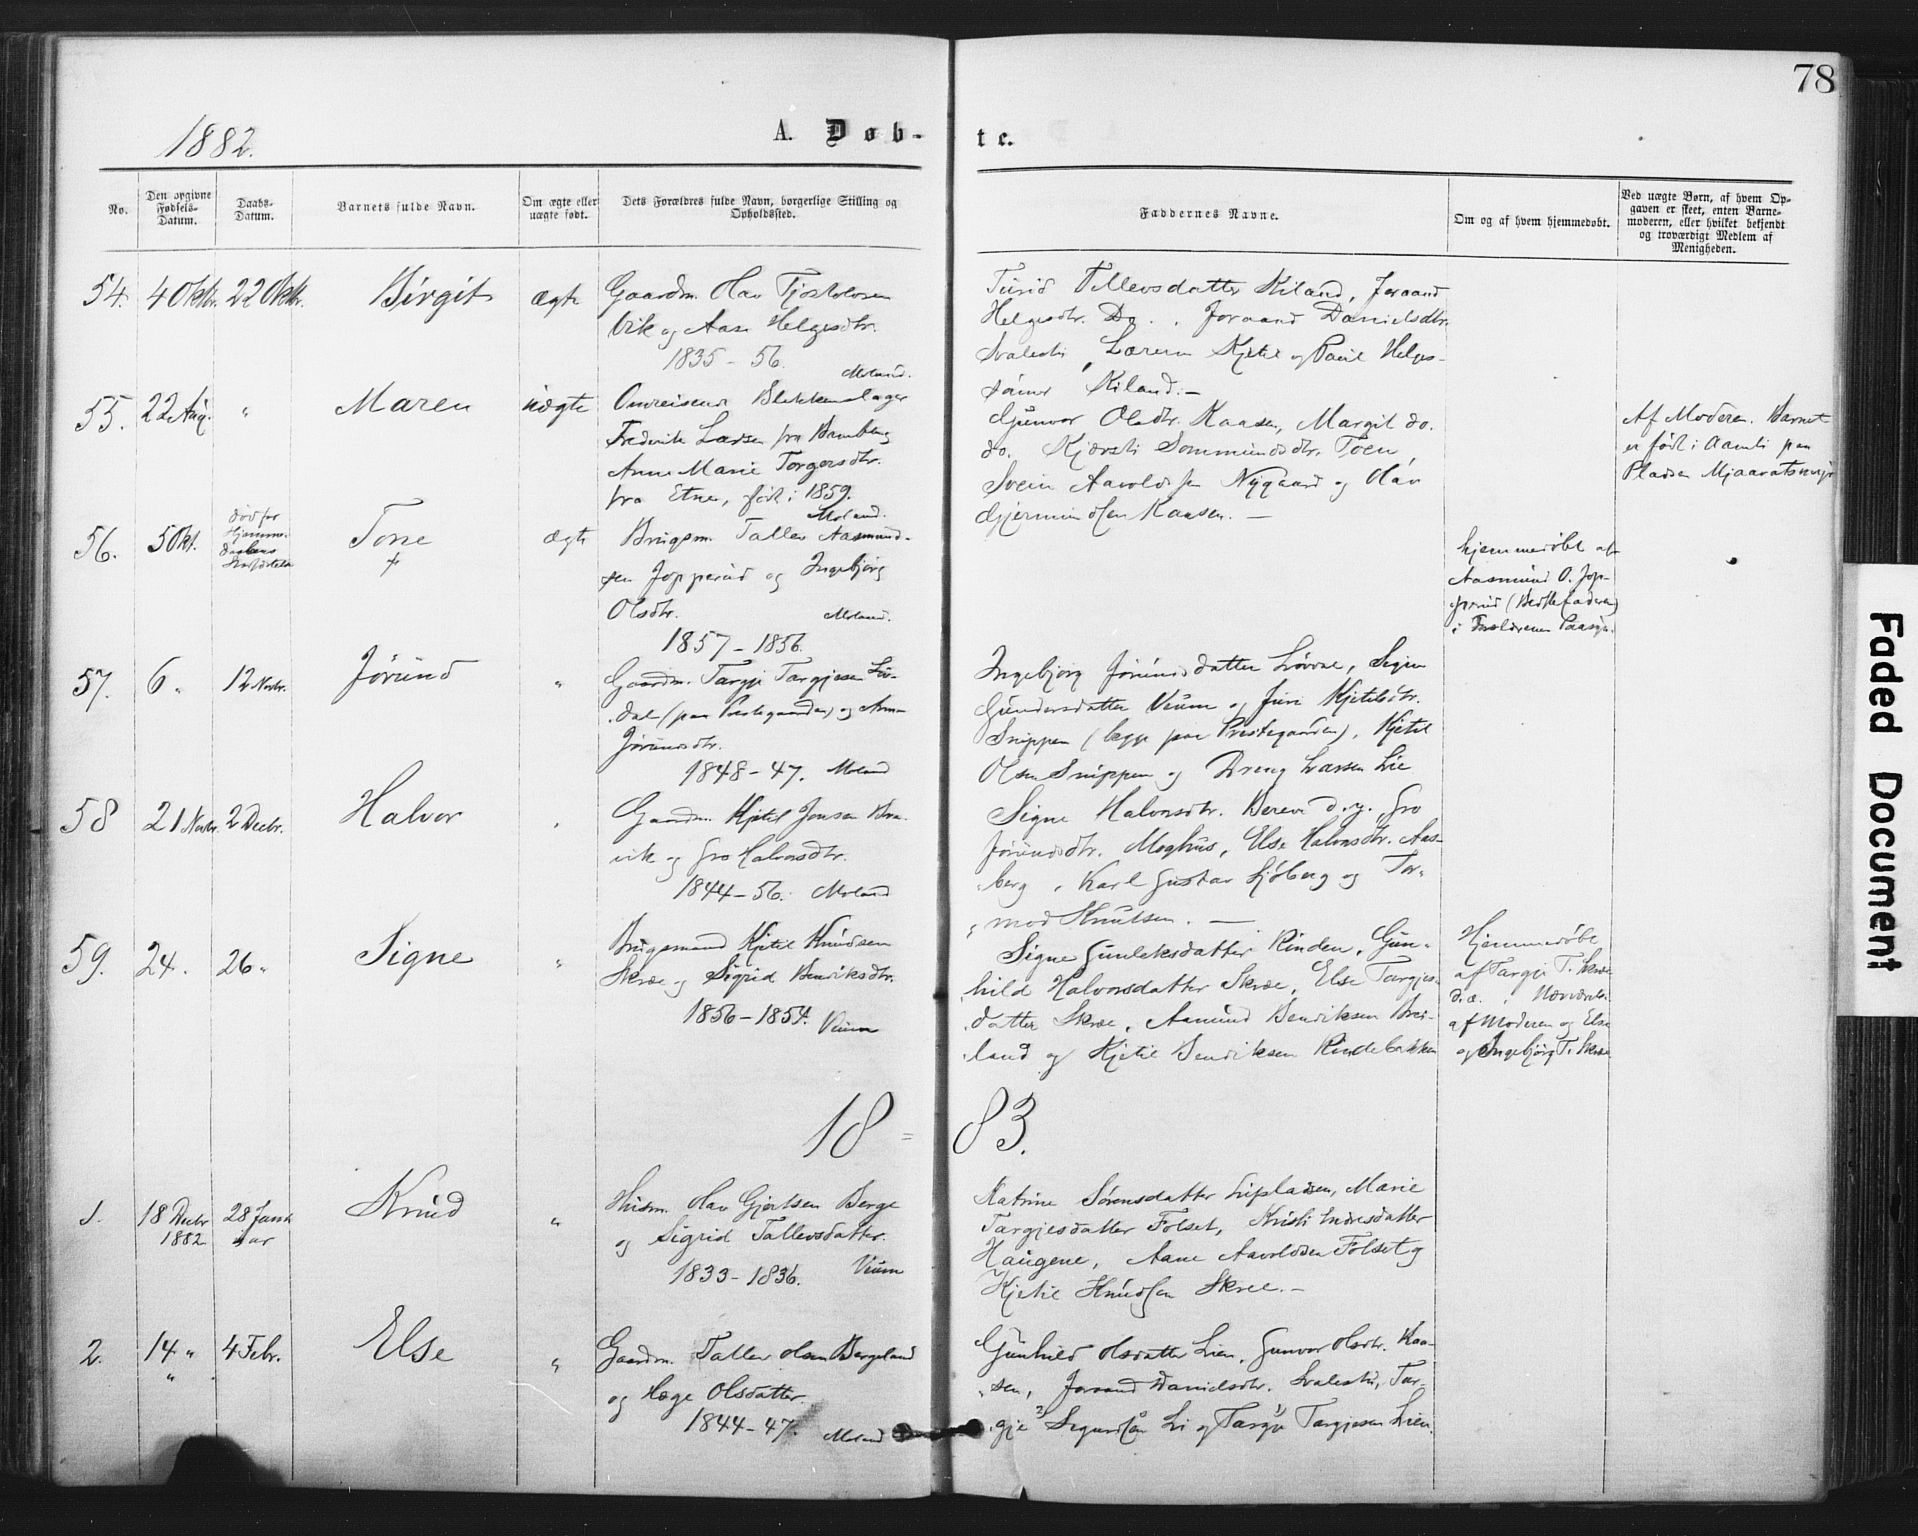 78
1882.
A. Døb-
te.
No.
Den opgivne Fødsels-Datum.
Daabs-Datum.
Barnets fulde Navn.
Om ægte eller uægte født.
Dets Forældres fulde Navn, borgerlige Stilling og Opholdssted.
Faddernes Navne.
Om og af hvem hjemmedøbt.
Ved uægte Børn, af hvem Op-
gaven er skeet, enten Barne-
moderen, eller hvilket bekjendt
og troværdigt Medlem af
Menigheden.
54. 4 Oktbr. 22 Oktbr. Birgit ægte
Gaardm. Olav Tjostolvsen
Vik og Aase Helgesdtr.
1835 - 56.
Moland.
Turid Tellevsdatter Kiland, Joraand
Helgesdtr. Do., Joraand Danielsdtr.
Svalesti, Lærerne Kjetil og Paul Helges-
sønner Kiland. -
55. 22 Aug. " Maren uægte
Omreisende Blikkenslager
Frederik Larsen fra Bamble og
Anne Marie Torgersdtr.
fra Etne, født i 1859.
Moland.
Gunvor Olsdtr. Kaasen, Margit do.
do. Kjersti Sommundsdtr. Toen,
Svein Aavoldsen Nygaard og Olav
Gjermundsen Kaasen. -
Af Moderen. Barnet
er født i Aamli paa
Pladsen
56. 5 Okt.
død før
Hjemme-
daabens
Stadfæstelse
Tone
+
ægte
Brugsm. Tallev Aasmund-
sen Jopperud og Ingebjørg
Olsdtr.
Moland.
1857 - 1856.
hjemmedøbt af
Aasmund O. Jop-
perud (Bedstefaderen)
i Forældrenes Paasyn.
57. 6 " 12 Novbr. Jørund "
Gaardm. Targje Targjesen Liv-
dal (paa Prestegaarden) og Anne
Jørundsdtr.
1848 - 47. Moland
Ingebjørg Jørundsdatter Løvrae, Signe
Gundersdatter Veum og Juri Kjetilsdtr.
Snippen (begge paa Prestegaarden), Kjetil
Olsen Snippen og Dreng Larsen Lie
58 21 Novbr. 2 Decbr. Halvor "
Gaardm. Kjetil Jonsen Bra-
vik og Gro Halvorsdtr.
1844 - 56. Moland
Signe Halvorsdtr. Berevi d.y., Gro
Jørundsdtr. Moghus, Else Halvorsdtr. Aas-
berg, Karl Gustav Sjøberg og Tor-
mod Knutsen. -
59. 24. 26 " Signe "
Brugsmand Kjetil Knudsen
Skræe og Sigrid Bendiksdtr.
1856 - 1854. Veum
Signe Gunleksdatter Rinden, Gun-
hild Halvorsdatter Skræe, Else Targjes-
datter Skræe, Aamund Bendiksen Brei-
land og Kjetil Bendiksen Rindebakken
Hjemmedøbt
af Targje T. Skræe
d.æ.
af Moderen og Else
og Ingebjørg T. Skræe
18 = 83.
1. 18 Decbr 1882. 28 Januar Knud "
Husm. Olav Gjertsen Berge
og Sigrid Tallevsdatter.
1833 - 1836. Veum
Katrine Sørensdatter Lipladsen, Marie
Targjesdatter Folset, Kristi Endresdatter
Haugene, Aane Aavoldsen Folset og
Kjetil Knudsen Skree. -
2. 14 " " 4 Febr. Else "
Gaardm. Tallev Olsen Bergeland
og Hæge Olsdatter.
1844 - 47. Moland
Gunhild Olsdatter Lien, Gunvor Olsdtr. Kaa-
sen, Joraand Danielsdtr. Svalesti, Tar-
gje Sigurdsøn Li og Targje Targjesen Lien.
Faded Document